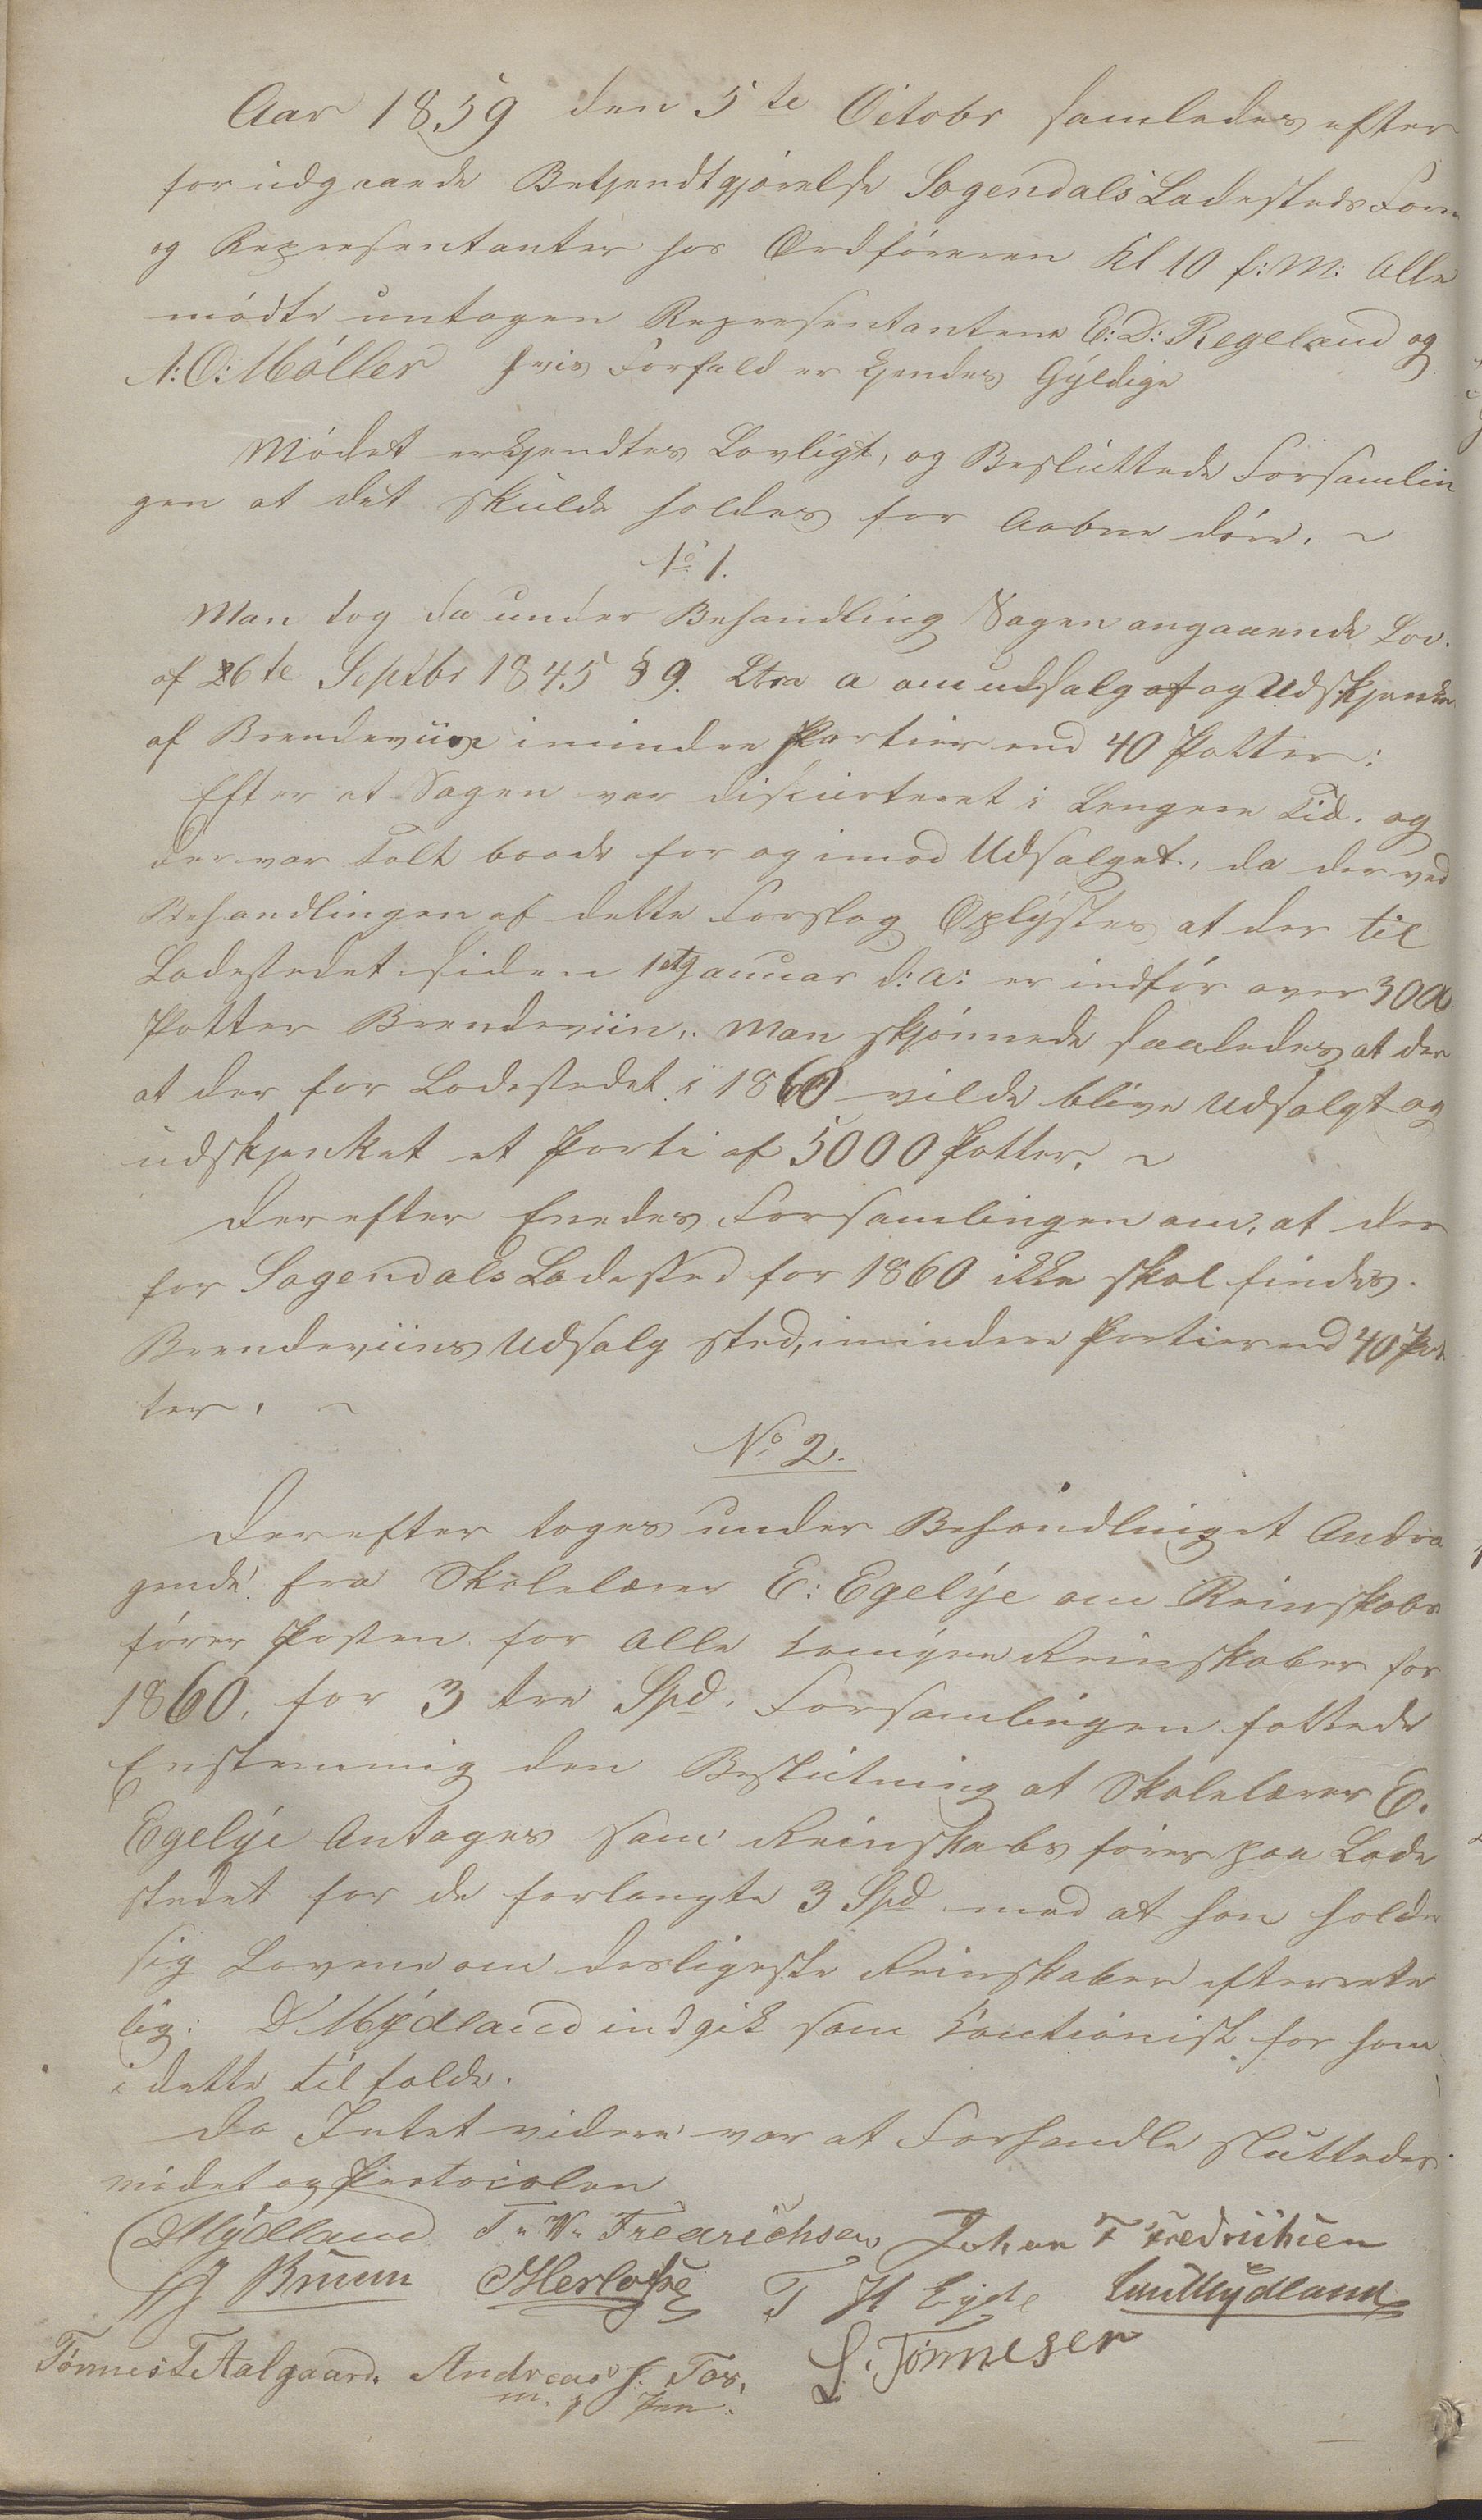 Aar 1859 den 5te Octobr samledes efter
forudgaaende Bekjendtgjørelse Sogendals Ladesteds Form
og Representanter hos Ordføreren Kl 10 f:M: Alle
mødte untagen Representantene E:D: Regeland og
N:O: Møller hvis Forfald er kjendes Gyldige
Mødet erkjendtes Lovligt, og Besluttede Forsamlin
gen at det skulde holdes for Aabne døre. ~
No 1.
Man tog da under Behandling Sagen angaaende Lov.
af 26te Septbr 1845 § 9. Ltra a om udsalg af og Udskjenkn
af Brendeviin i mindre Partier end 40 Potter:
Efter at Sagen var discurteret i Lengere Tid. og
der var Talt baade for og imod Udsalget, da der ved
Behandlingen af dette Forslag Oplystes at der til
Ladestedet siden 1ste Januar d:a: er indfør over 3000
Potter Brendeviin. Man skjønnede saaledes at der
at der for Ladestedet i 1860 vilde blive Udsalgt og
udskjenket et Parti af 5000 Potter. ~
Derefter Enedes Forsamlingen om, at der
for Sogendals Ladested for 1860 ikke skal findes.
Brendeviins Udsalg sted, i mindere Partier end 40 Pot
ter. ~
No 2.
Derefter toges under Behandling et Andra
gende fra Skolelærer E: Egelye om Reinskabs
fører Posten for Alle Komunen Reinskaber for
1860, for 3 tre Spd. Forsamlingen fattede
Enstemmig den Beslutning at Skolelærer E.
Egelye Antages som Reinskabs fører paa Lade
stedet for de forlangte 3 Spd mod at han holder
sig Lovene om desligeste Reinskaber efterrete
lig: D Mydland indgik som Kautionist for ham
i dette tilfælde.
Da Intet videre var at Forhandle sluttedes
mødet og Protocolen
DMydland T. W. Fredrichsen Johan F Fredrichsen
Bruun T H Eyde Mydland
Tønnes T. Aalgaard. Andreas J. Tor, S. Tønnesen
m. p Pen.